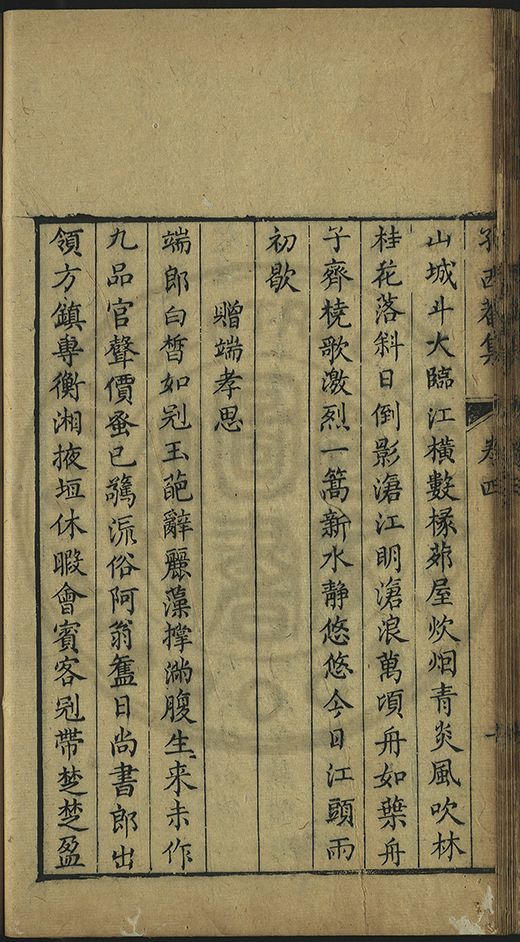 卷四
山城斗大臨江橫數椽茆屋炊烟青炎風吹林
桂花落斜日倒影滄江明滄浪萬頃舟如葉舟
子齊橈歌激烈一篙新水靜悠悠今日江頭雨
初歇
贈端孝思
端郎白皙如冠玉葩辭麗藻撑滿腹生來未作
九品官聲價蚤已驚流俗阿翁舊日尚書郎出
領方鎮專衡湘掖垣休暇會賓客冠帶楚楚盈